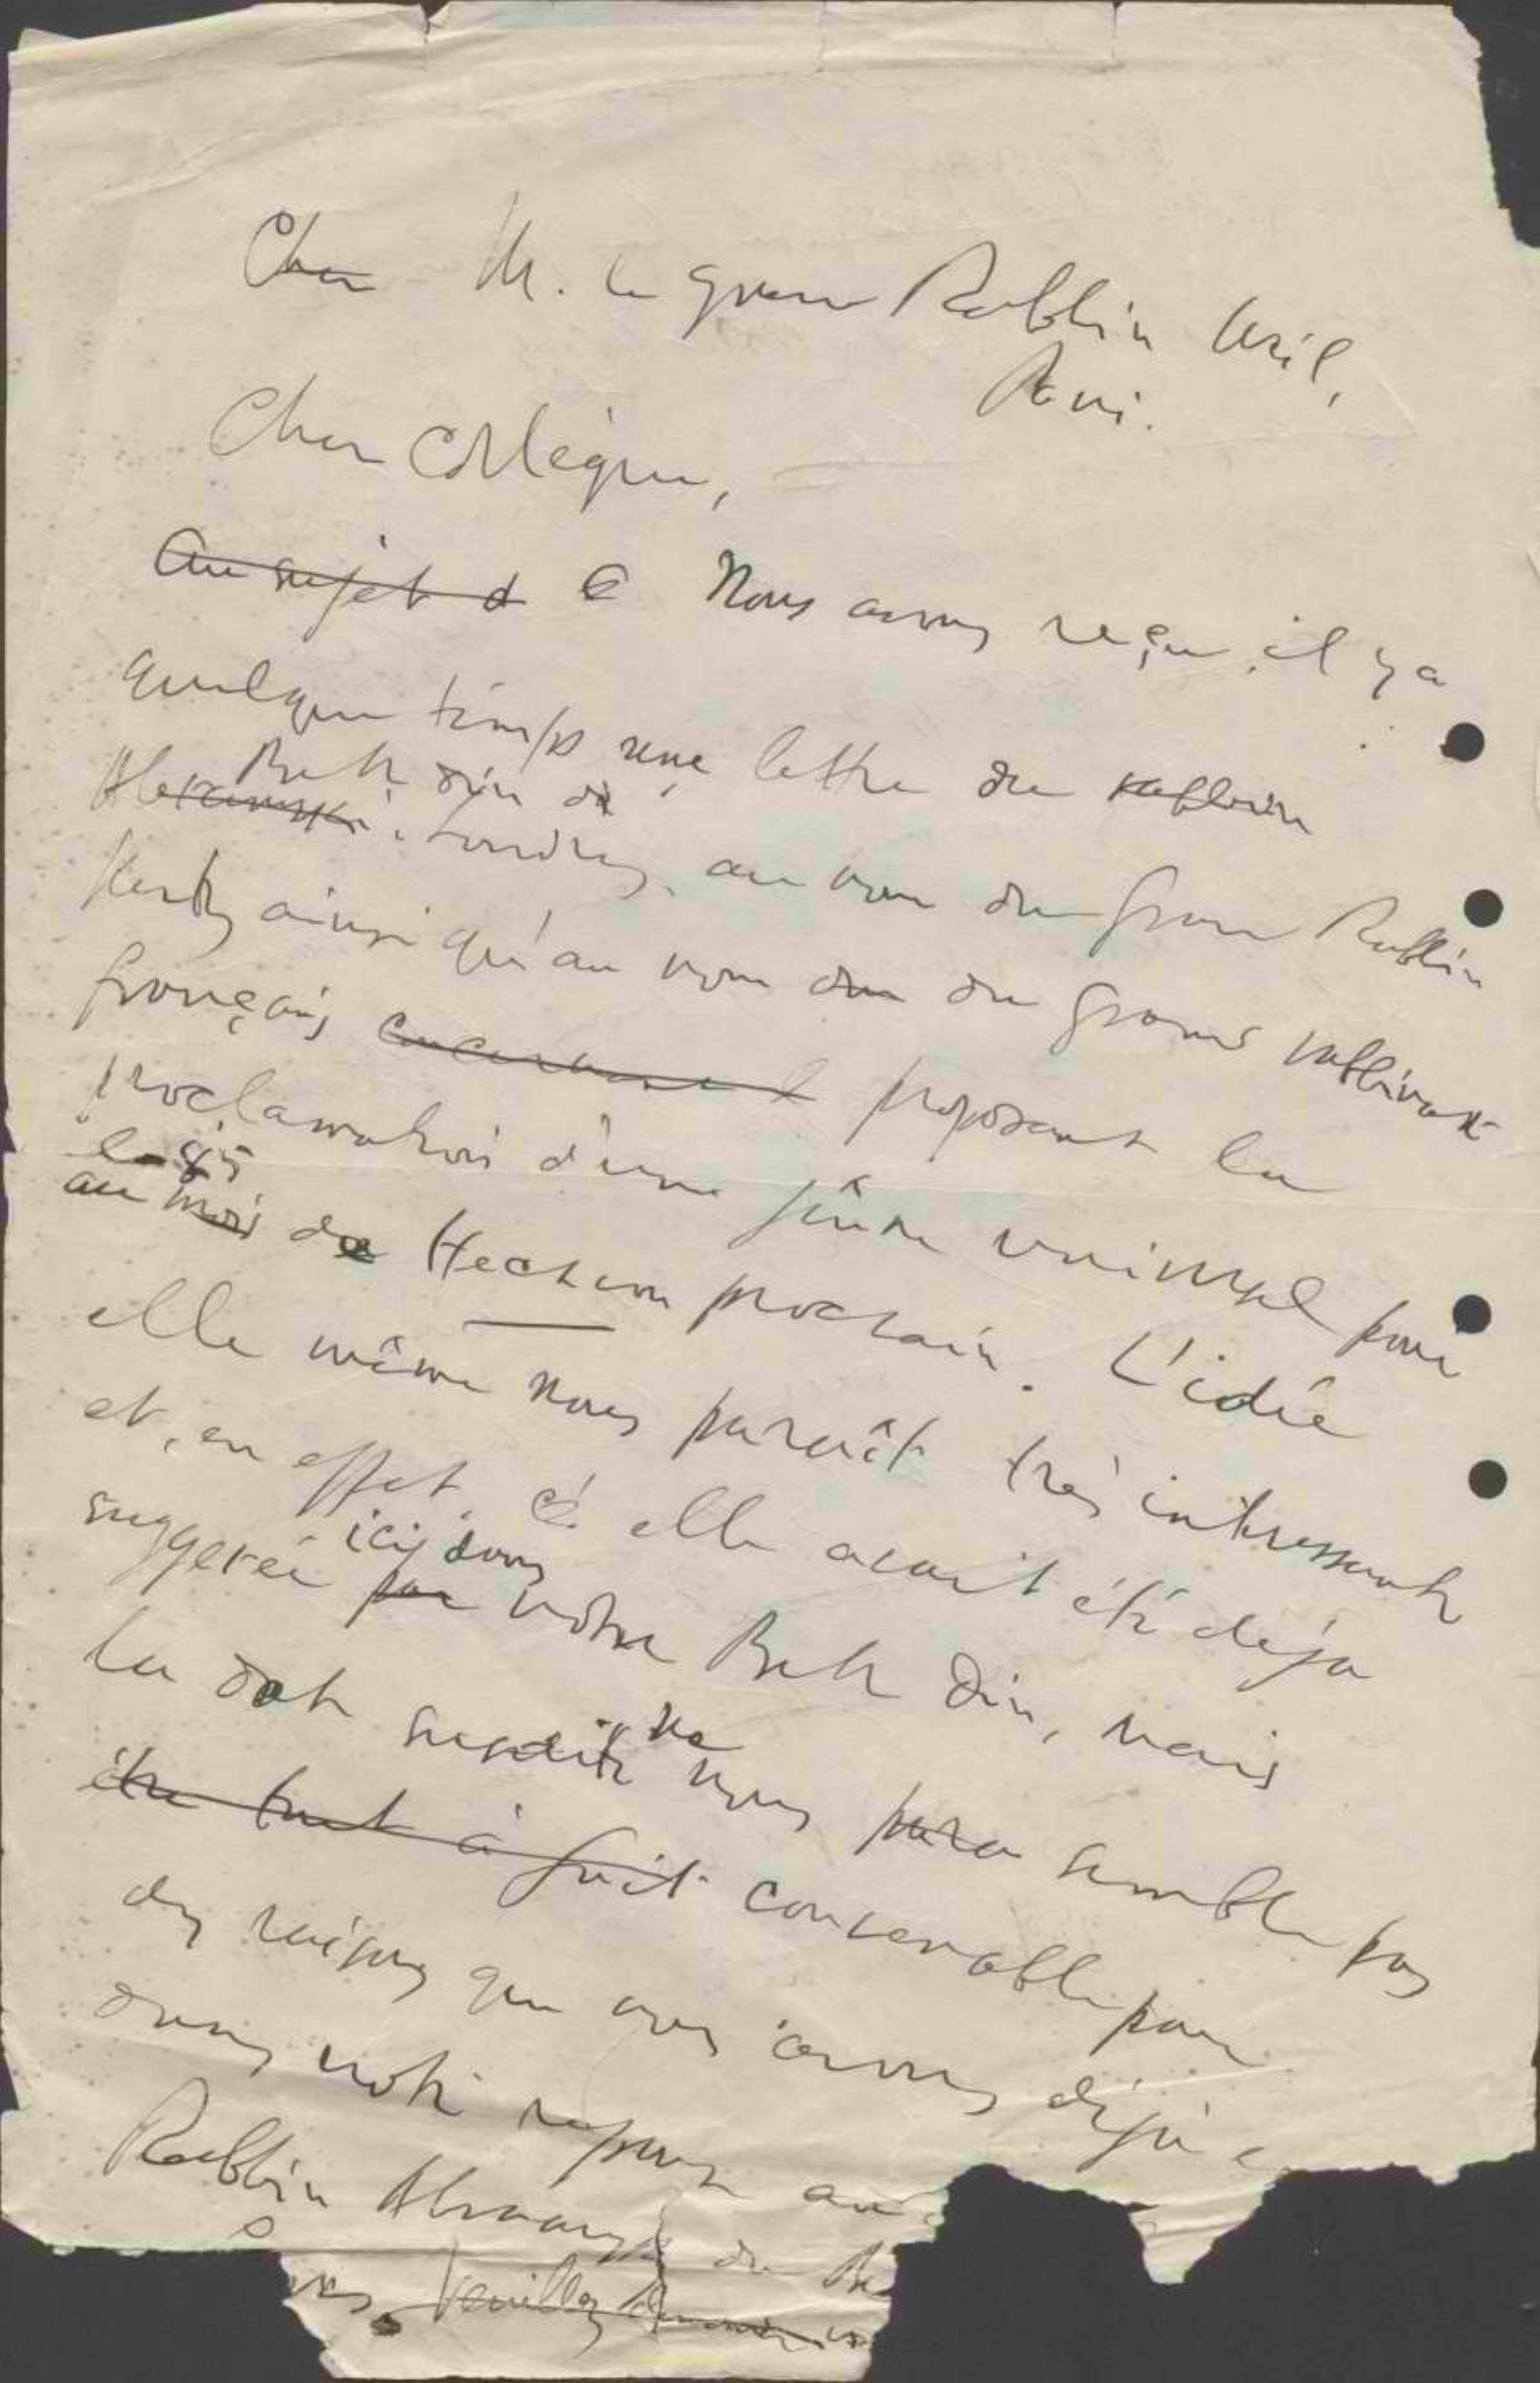 Cher M. le Grand Rabbin Weil,
Paris.
Cher Collègue,
Au sujet d Nous avons reçu, il y a
quelque temps une lettre du rabbin
Beth din de
Abramski Londres, au nom du Grand Rabbin
Hertz ainsi qu'au nom du Grand rabbinat
français concernant proposant la
proclamation d'un jeûne universel pour
le 15
au mois de Hechvan prochain. L'idée
elle même nous paraît très intéressante
et, en effet, elle avait été déja
suggerée par notre Beth Din, mais
ici, dans
la date susdite ne nous para semble pas
être tout à fait convenable pour
des raisons que nous avons déjà
dans notre reponse au
Rabbin Abramski du
Veuillez